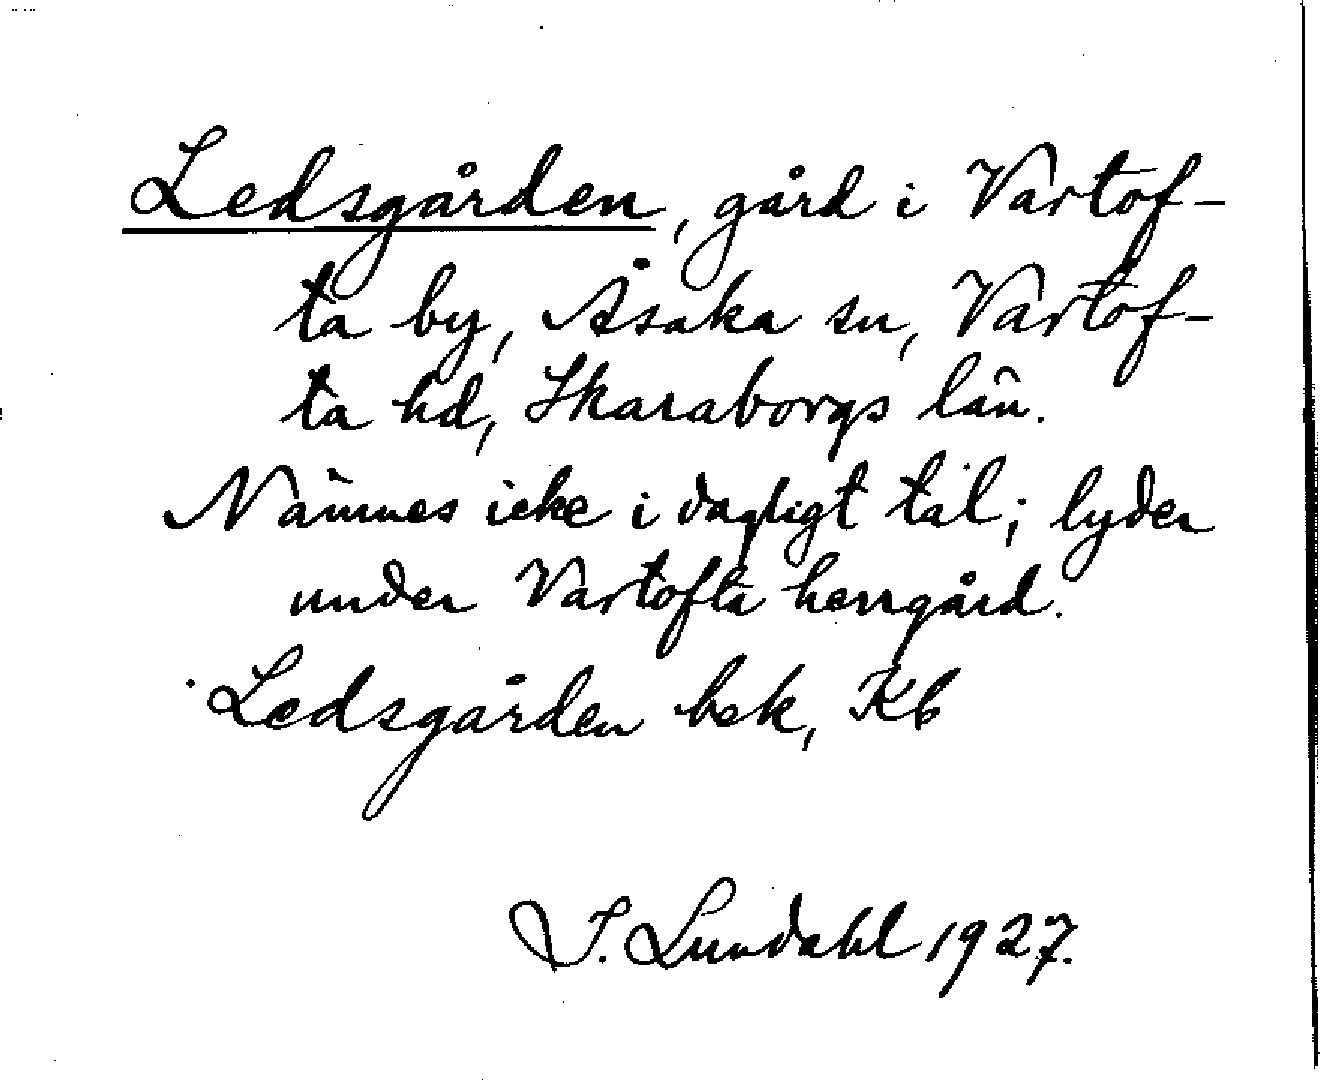 Ledsgården, gård i Vartof-
ta by, Åsaka sn, Vartof-
ta hd, Skaraborgs län.
Nämnes icke i dagligt tal; lyder
under Vartofta herrgård.
Ledsgården bek, Kb
I. Lundahl 1927.